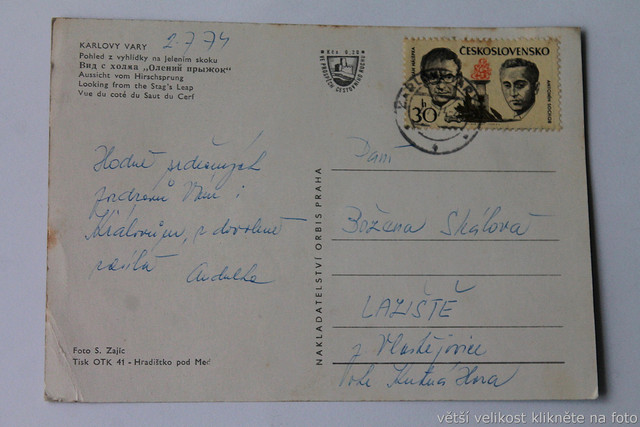 KARLOVY VARY 2.7.74
Pohled z vyhlídky na Jelením skoku
Вид с холма „Олений прыжок"
Aussicht vom Hirschsprung
Looking from the Stag's Leap
Vue du coté du Saut du Cerf
Kčs 0.20
VE PROSPĚCH CESTOVNÍHO RUCHU
ČESKOSLOVENSKO
30 h
Hodně srdečných
pozdravů Vám i
Královům, z dovolené
zasílá
Andulka
NAKLADATELSTVÍ ORBIS PRAHA
Paní
Božena Skálová
LAZIŠTĚ
Vlastějovice
Kutná Hora
Foto S. Zajíc
Tisk OTK 41 - Hradištko pod Med
větší velikost klikněte na foto